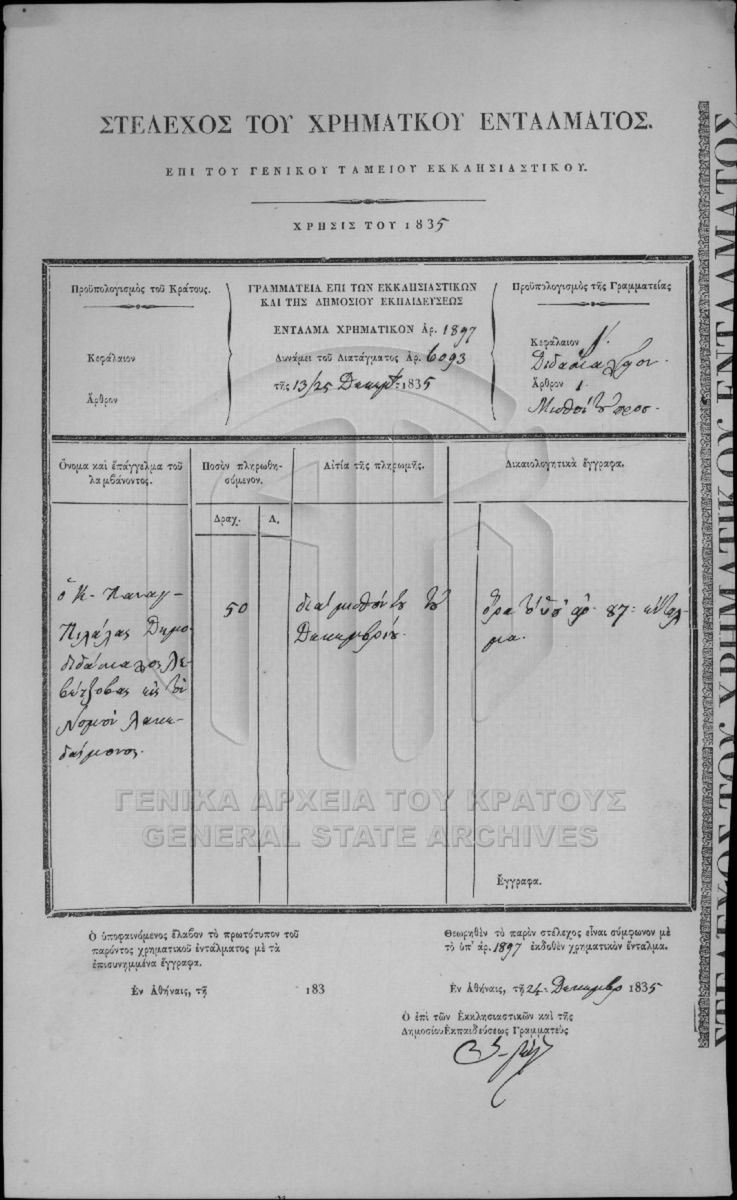 ΣΤΕΛΕΧΟΣ ΤΟΥ ΧΡΗΜΑΤΚΟΥ ΕΝΤΑΛΜΑΤΟΣ.
ΕΠΙ ΤΟΥ ΓΕΝΙΚΟΥ ΤΑΜΕΙΟΥ ΕΚΚΛΗΣΙΑΣΤΙΚΟΥ.
ΧΡΗΣΙΣ ΤΟΥ 1835
Προϋπολογισμὸς τοῦ Κράτους.
Κεφάλαιον
Ἄρθρον
ΓΡΑΜΜΑΤΕΙΑ ΕΠΙ ΤΩΝ ΕΚΚΛΗΣΙΑΣΤΙΚΩΝ
ΚΑΙ ΤΗΣ ΔΗΜΟΣΙΟΥ ΕΚΠΑΙΔΕΥΣΕΩΣ
ΕΝΤΑΛΜΑ ΧΡΗΜΑΤΙΚΟΝ Ἀρ. 1897
Δυνάμει τοῦ Διατάγματος Ἀρ. 6093
τῆς 13/25 Δεκεμβ. 1835
Προϋπολογισμὸς τῆς Γραμματείας
Κεφάλαιον
Ἄρθρον 1.
Ὄνομα καὶ ἐπάγγελμα τοῦ
λαμβάνοντος.
Ποσὸν πληρωθη-
σόμενον.
Δραχ. Λ.
Αἰτία τῆς πληρωμῆς.
Δικαιολογητικὰ ἔγγραφα.
ὁ Κ. Παναγ
Πιλάλας Δημο
διδάσκαλος Λε
βέτζοβας εἰς τὸν
Νομὸν Λακε
δαίμονος.
50
διὰ μισθόν του τοῦ
Δεκεμβρίου.
ὅρα τὸ ὑπ' ἀρ. 87: ἔνταλ
μα.
Ἔγγραφα.
ΓΕΝΙΚΑ ΑΡΧΕΙΑ ΤΟΥ ΚΡΑΤΟΥΣ
GENERAL STATE ARCHIVES
Ὁ ὑποφαινόμενος ἔλαβον τὸ πρωτότυπον τοῦ
παρόντος χρηματικοῦ ἐντάλματος μὲ τὰ
ἐπισυνημμένα ἔγγραφα.
Ἐν Ἀθήναις, τῇ 183
Θεωρηθὲν τὸ παρὸν στέλεχος εἶναι σύμφωνον μὲ
τὸ ὑπ' ἀρ. 1897 ἐκδοθὲν χρηματικὸν ἔνταλμα.
Ἐν Ἀθήναις, τῇ 24 Δεκεμβρ 1835
Ὁ ἐπὶ τῶν Ἐκκλησιαστικῶν καὶ τῆς
Δημοσίου Ἐκπαιδεύσεως Γραμματεὺς
ΣΤΕΛΕΧΟΣ ΤΟΥ ΧΡΗΜΑΤΙΚΟΥ ΕΝΤΑΛΜΑΤΟΣ